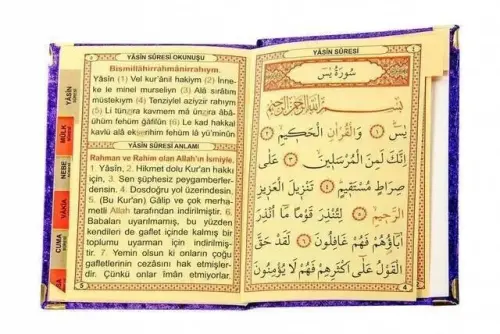 YÂSÎN SÛRESİ
سُورَةُ يٰسۤ
بِسْمِ اللّٰهِ الرَّحْمٰنِ الرَّحِيمِ
يٰسۤ ﴿١﴾ وَالْقُرْاٰنِ الْحَكِيمِ ﴿٢﴾
اِنَّكَ لَمِنَ الْمُرْسَلِينَ ﴿٣﴾ عَلٰى
صِرَاطٍ مُسْتَقِيمٍ ﴿٤﴾ تَنْزِيلَ الْعَزِيزِ
الرَّحِيمِ ﴿٥﴾ لِتُنْذِرَ قَوْمًا مَٓا اُنْذِرَ
اٰبَٓاؤُهُمْ فَهُمْ غَافِلُونَ ﴿٦﴾ لَقَدْ حَقَّ
الْقَوْلُ عَلٰٓى اَكْثَرِهِمْ فَهُمْ لَا يُؤْمِنُونَ
4
YÂSİN SÛRESİ OKUNUŞU
Bismillâhirrahmânirrahıym.
Yâsîn (1) Vel kur'ânil hakiym (2) İnne-
ke le minel murseliyn (3) Alâ sırâtim
müstekıym (4) Tenziylel aziyzir rahıym
(5) Li tünzira kavmem mâ ünzira âbâ-
ühüm fehüm ğâfilûn (6) Le kad hakkal
kavlü alâ ekserihim fehüm lâ yü'minûn
YÂSİN SÛRESİ ANLAMI
Rahman ve Rahim olan Allah'ın İsmiyle.
1. Yâsîn, 2. Hikmet dolu Kur'an hakkı
için, 3. Sen şüphesiz peygamberler-
densin. 4. Dosdoğru yol üzerindesin.
5. (Bu Kur'an) Gâlip ve çok merha-
metli Allah tarafından indirilmiştir. 6.
Babaları uyarılmamış, bu yüzden
kendileri de gaflet içinde kalmış bir
toplumu uyarman için indirilmiş-
tir. 7. Yemin olsun ki onların çoğu
gafletlerinin cezâsını hak etmişler-
dir. Çünkü onlar îman etmiyorlar.
5
YÂSİN
MÜLK
NEBE
VÂKIA
CUMA